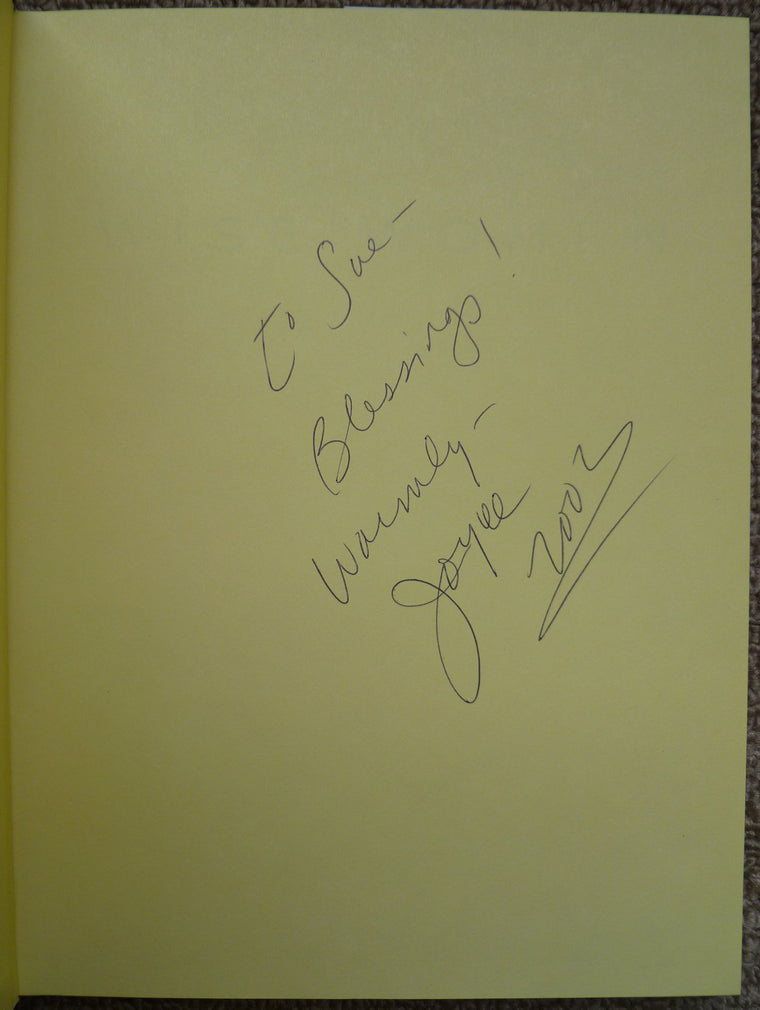 to Sue –
Blessings!
Warmly –
Joyce 2002